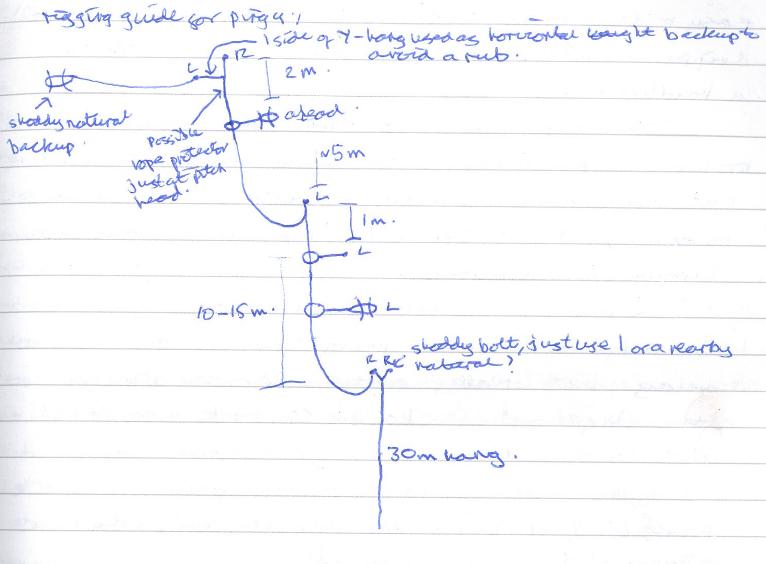 rigging guide for
1 side of Y-hang used as horizontal backup to
avoid a rub.
R
L
2m.
shoddy natural
backup.
possible
rope protector
just at pitch
head.
ahead.
~5m
L
1m.
L
10-15m.
L
shoddy bolt, just use 1 or a nearby
natural?
R
30m hang.